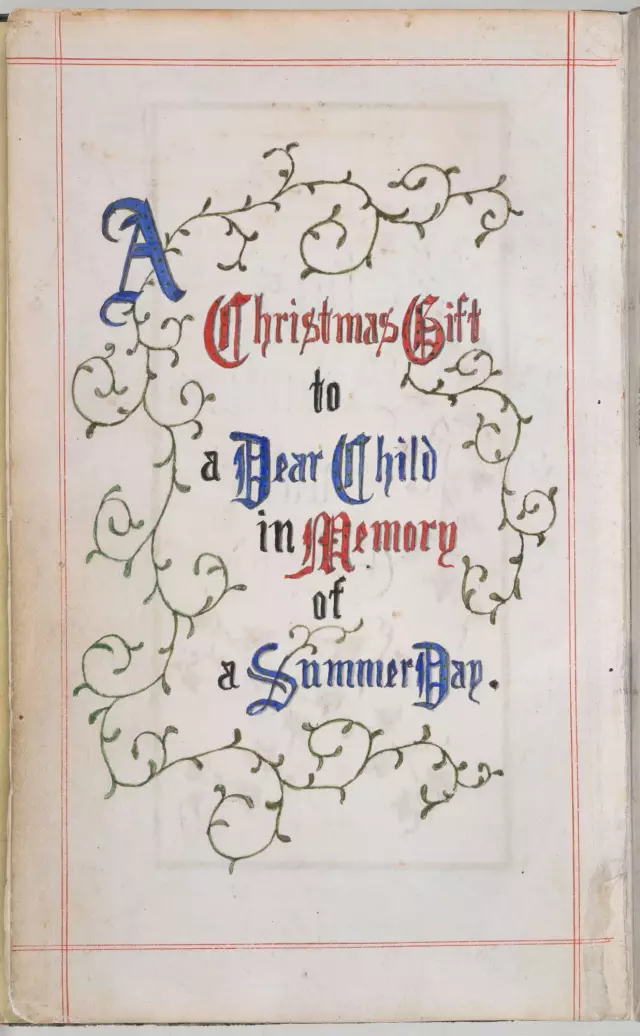 A
Christmas Gift
to
a Dear Child
in Memory
of
a Summer Day.